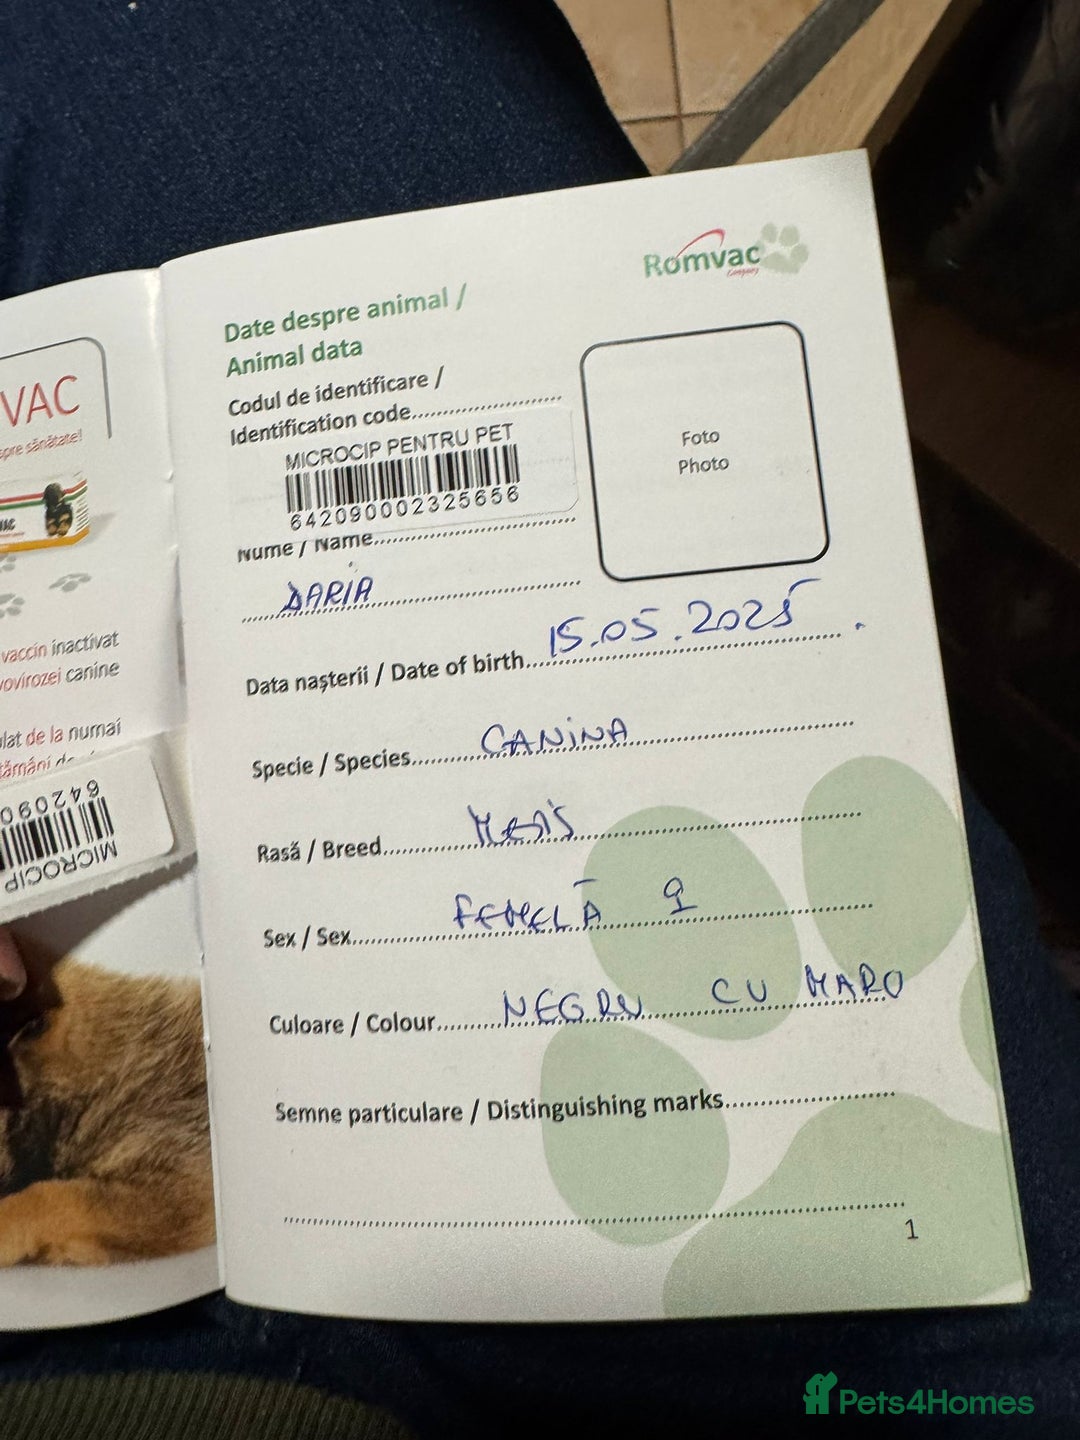 VAC
spre sănătate!
VAC
vaccin inactivat
vovirozei canine
lat de la numai
tămâni de
64209
MICROCIP
Romvac
Company
Date despre animal /
Animal data
Codul de identificare /
Identification code
MICROCIP PENTRU PET
642090002325656
Nume / Name
DARIA
Foto
Photo
Data nașterii / Date of birth 15.05.2025
Specie / Species CANINA
Rasă / Breed
Sex / Sex FEMELĂ ♀
Culoare / Colour NEGRU CU MARO
Semne particulare / Distinguishing marks
1
Pets4Homes